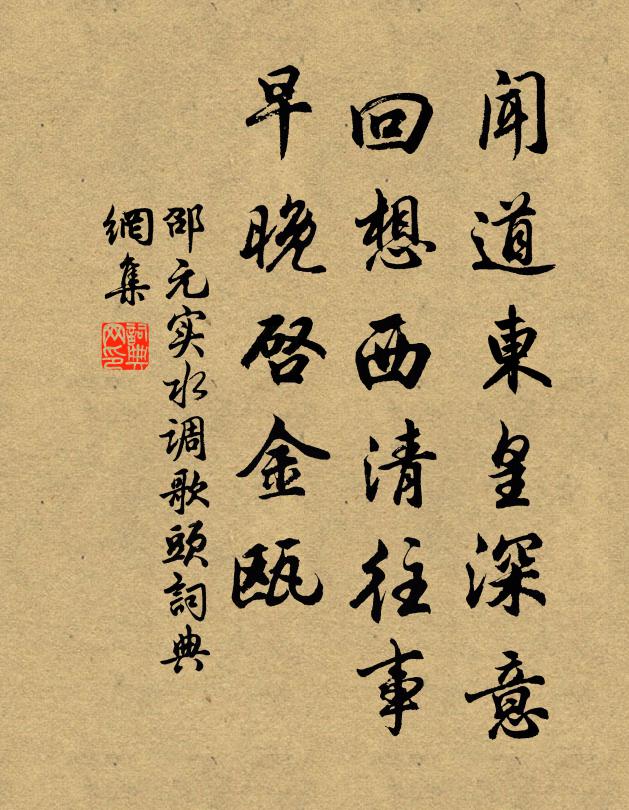 闻道東皇深意
回想西清往事
早晚启金瓯
邵元实水调歌頭詞典
網集
詞典网印